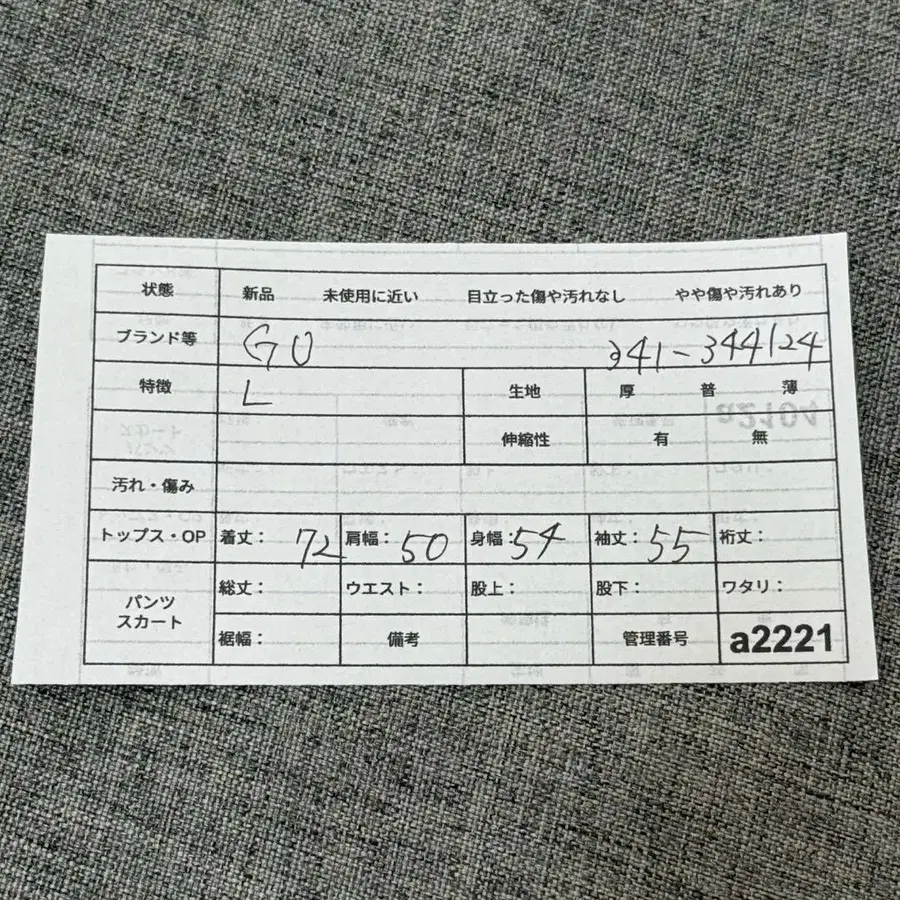 状態 新品 未使用に近い 目立った傷や汚れなし やや傷や汚れあり
ブランド等 GU 341-344124
特徴 L 生地 厚 普 薄
伸縮性 有 無
汚れ・傷み
トップス・OP 着丈: 72 肩幅: 50 身幅: 54 袖丈: 55 裄丈:
パンツ スカート 総丈: ウエスト: 股上: 股下: ワタリ:
裾幅: 備考 管理番号 a2221